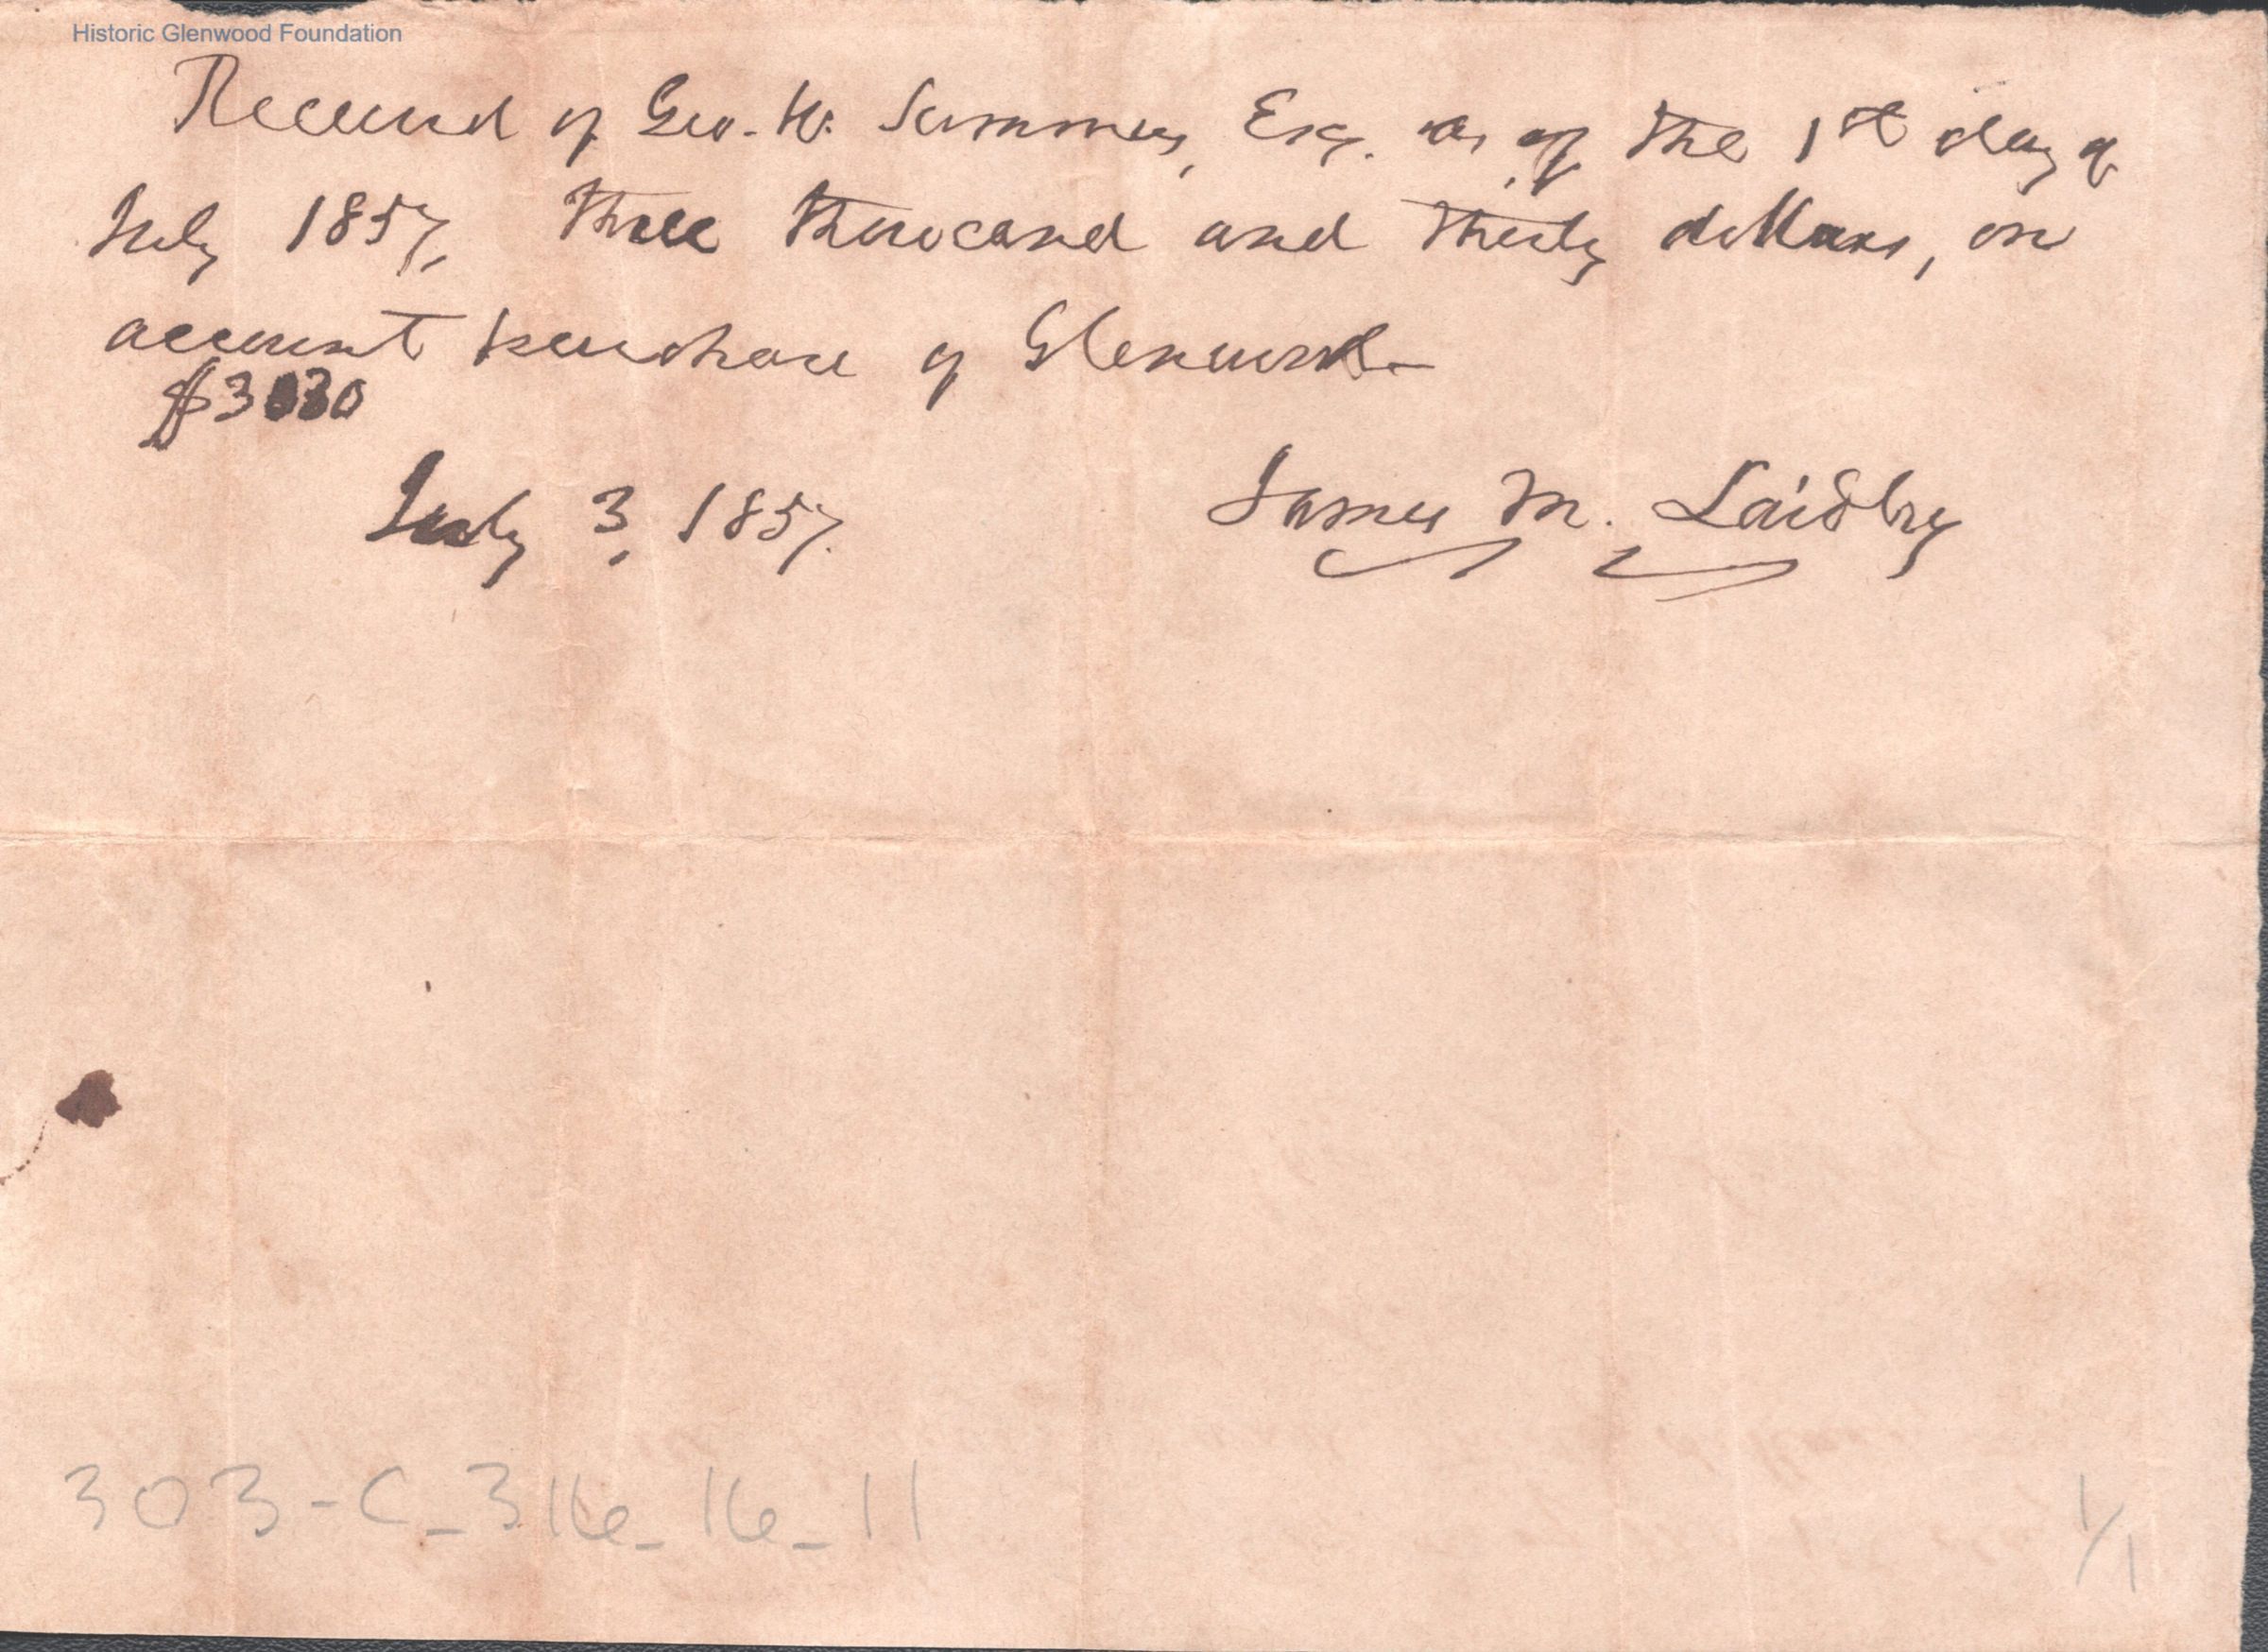 Historic Glenwood Foundation
Received of Geo. W. Summers, Esq. as of the 1st day of
July 1857, three thousand and thirty dollars, on
account purchase of Glenwood—
$3030
July 3, 1857.
James M. Laidley
303-C_316_16_11
1/1